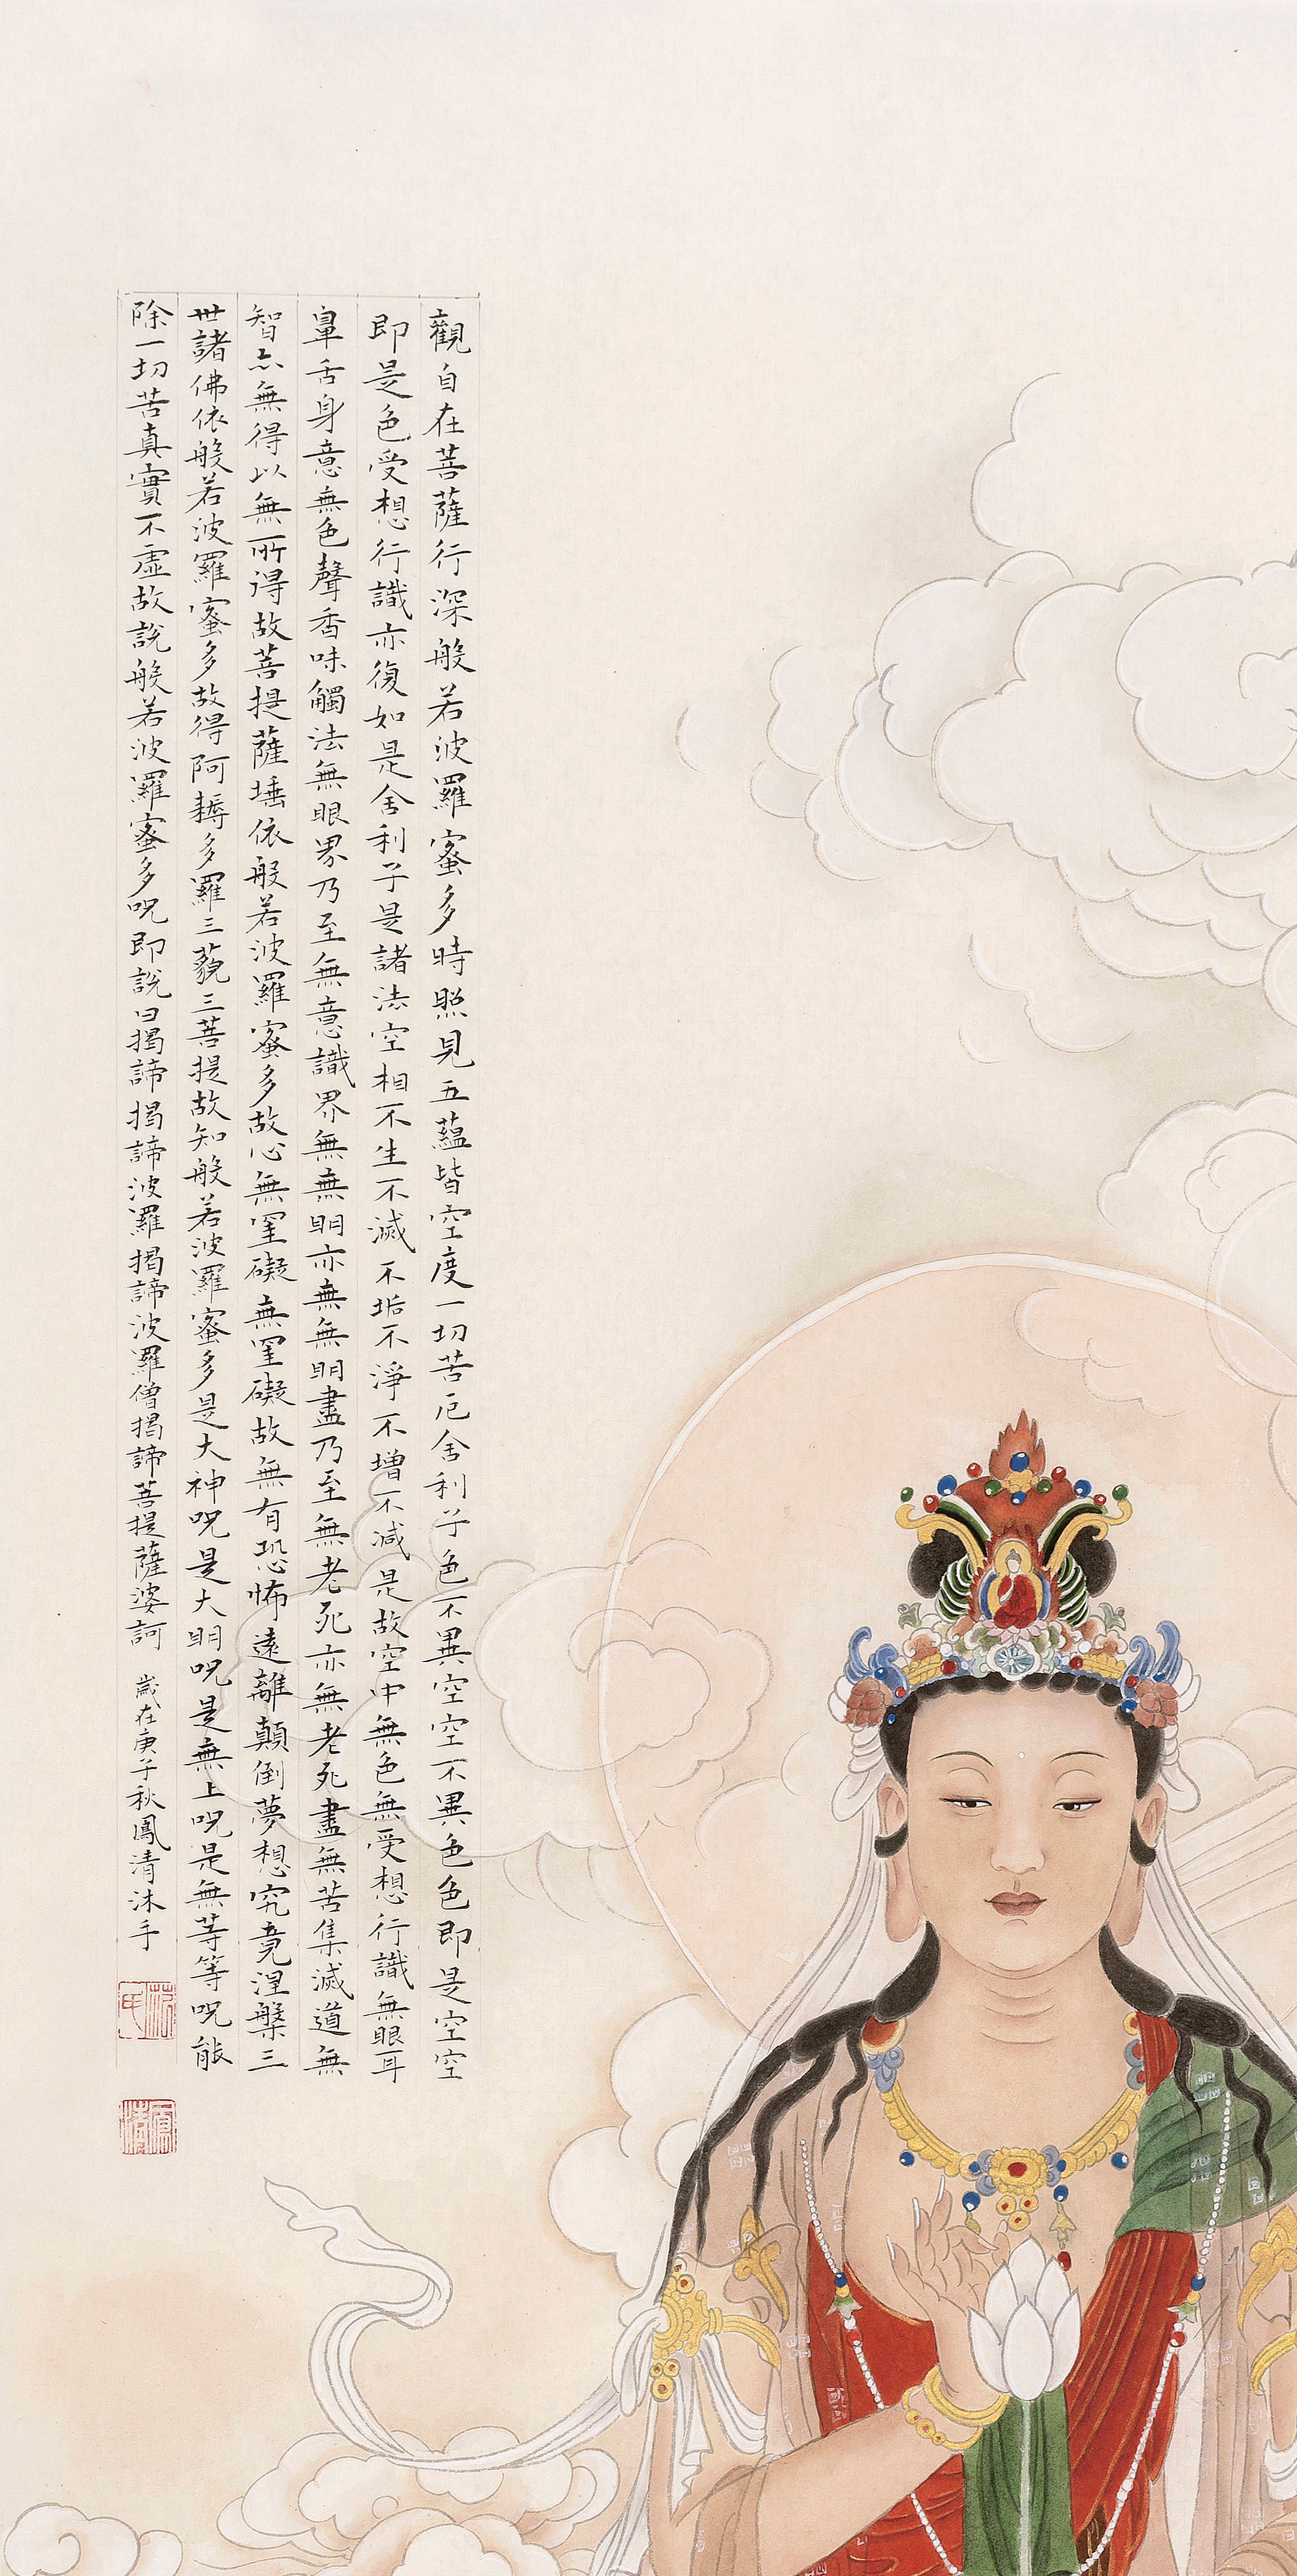 觀自在菩薩行深般若波羅蜜多時照見五蘊皆空度一切苦厄舍利子色不異空空不異色色即是空空
即是色受想行識亦復如是舍利子是諸法空相不生不滅不垢不淨不增不減是故空中無色無受想行識無眼耳
鼻舌身意無色聲香味觸法無眼界乃至無意識界無無明亦無無明盡乃至無老死亦無老死盡無苦集滅道無
智亦無得以無所得故菩提薩埵依般若波羅蜜多故心無罣礙無罣礙故無有恐怖遠離顛倒夢想究竟涅槃三
世諸佛依般若波羅蜜多故得阿耨多羅三藐三菩提故知般若波羅蜜多是大神呪是大明呪是無上呪是無等等呪能
除一切苦真實不虛故說般若波羅蜜多呪即說曰揭諦揭諦波羅揭諦波羅僧揭諦菩提薩婆訶 歲在庚子秋鳳清沐手